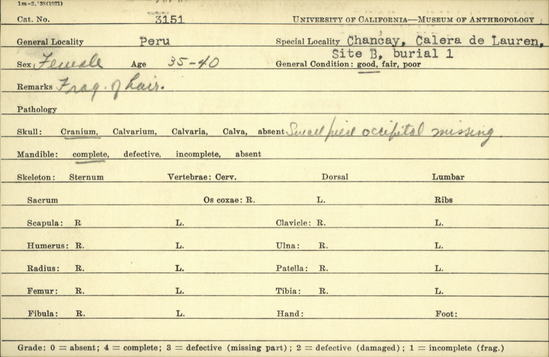 1m-2,'38(1971)
Cat. No. 3151 UNIVERSITY OF CALIFORNIA—MUSEUM OF ANTHROPOLOGY
General Locality Peru Special Locality Chancay, Calera de Lauren,
Site B, burial 1
Sex Female Age 35-40 General Condition: good, fair, poor
Remarks Frag. of hair.
Pathology
Skull: Cranium, Calvarium, Calvaria, Calva, absent Small pied occipital missing.
Mandible: complete, defective, incomplete, absent
Skeleton: Sternum Vertebrae: Cerv. Dorsal Lumbar
Sacrum Os coxae: R. L. Ribs
Scapula: R L. Clavicle: R. L.
Humerus: R. L. Ulna: R. L.
Radius: R. L. Patella: R. L.
Femur: R. L. Tibia: R. L.
Fibula: R. L. Hand: Foot:
Grade: 0 = absent; 4 = complete; 3 = defective (missing part); 2 = defective (damaged); 1 = incomplete (frag.)